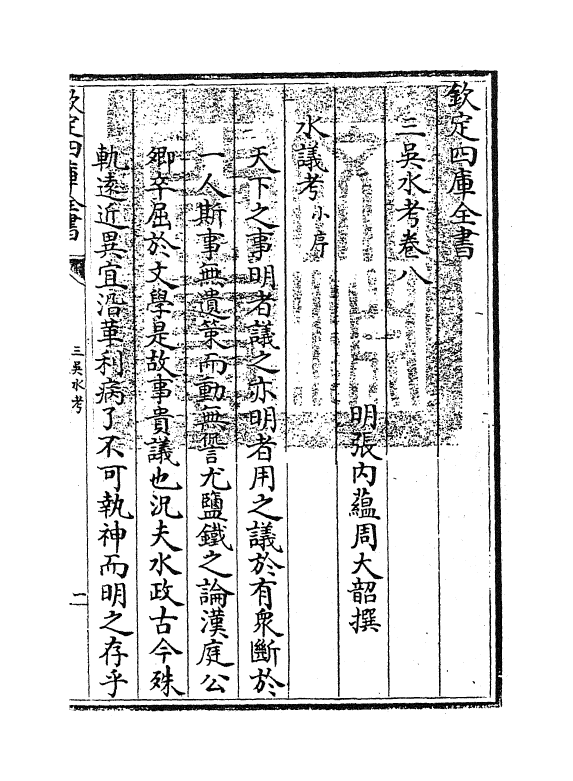 欽定四庫全書
三吳水考卷八
明張內蘊周大韶撰
水議考小序
天下之事明者議之亦明者用之議於有衆斷於
一人斯事無遺策而動無讐尤鹽鐵之論漢庭公
卿卒屈於文學是故事貴議也況夫水政古今殊
軌遠近異宜沿革利病了不可執神而明之存乎
欽定四庫全書
三吳水考